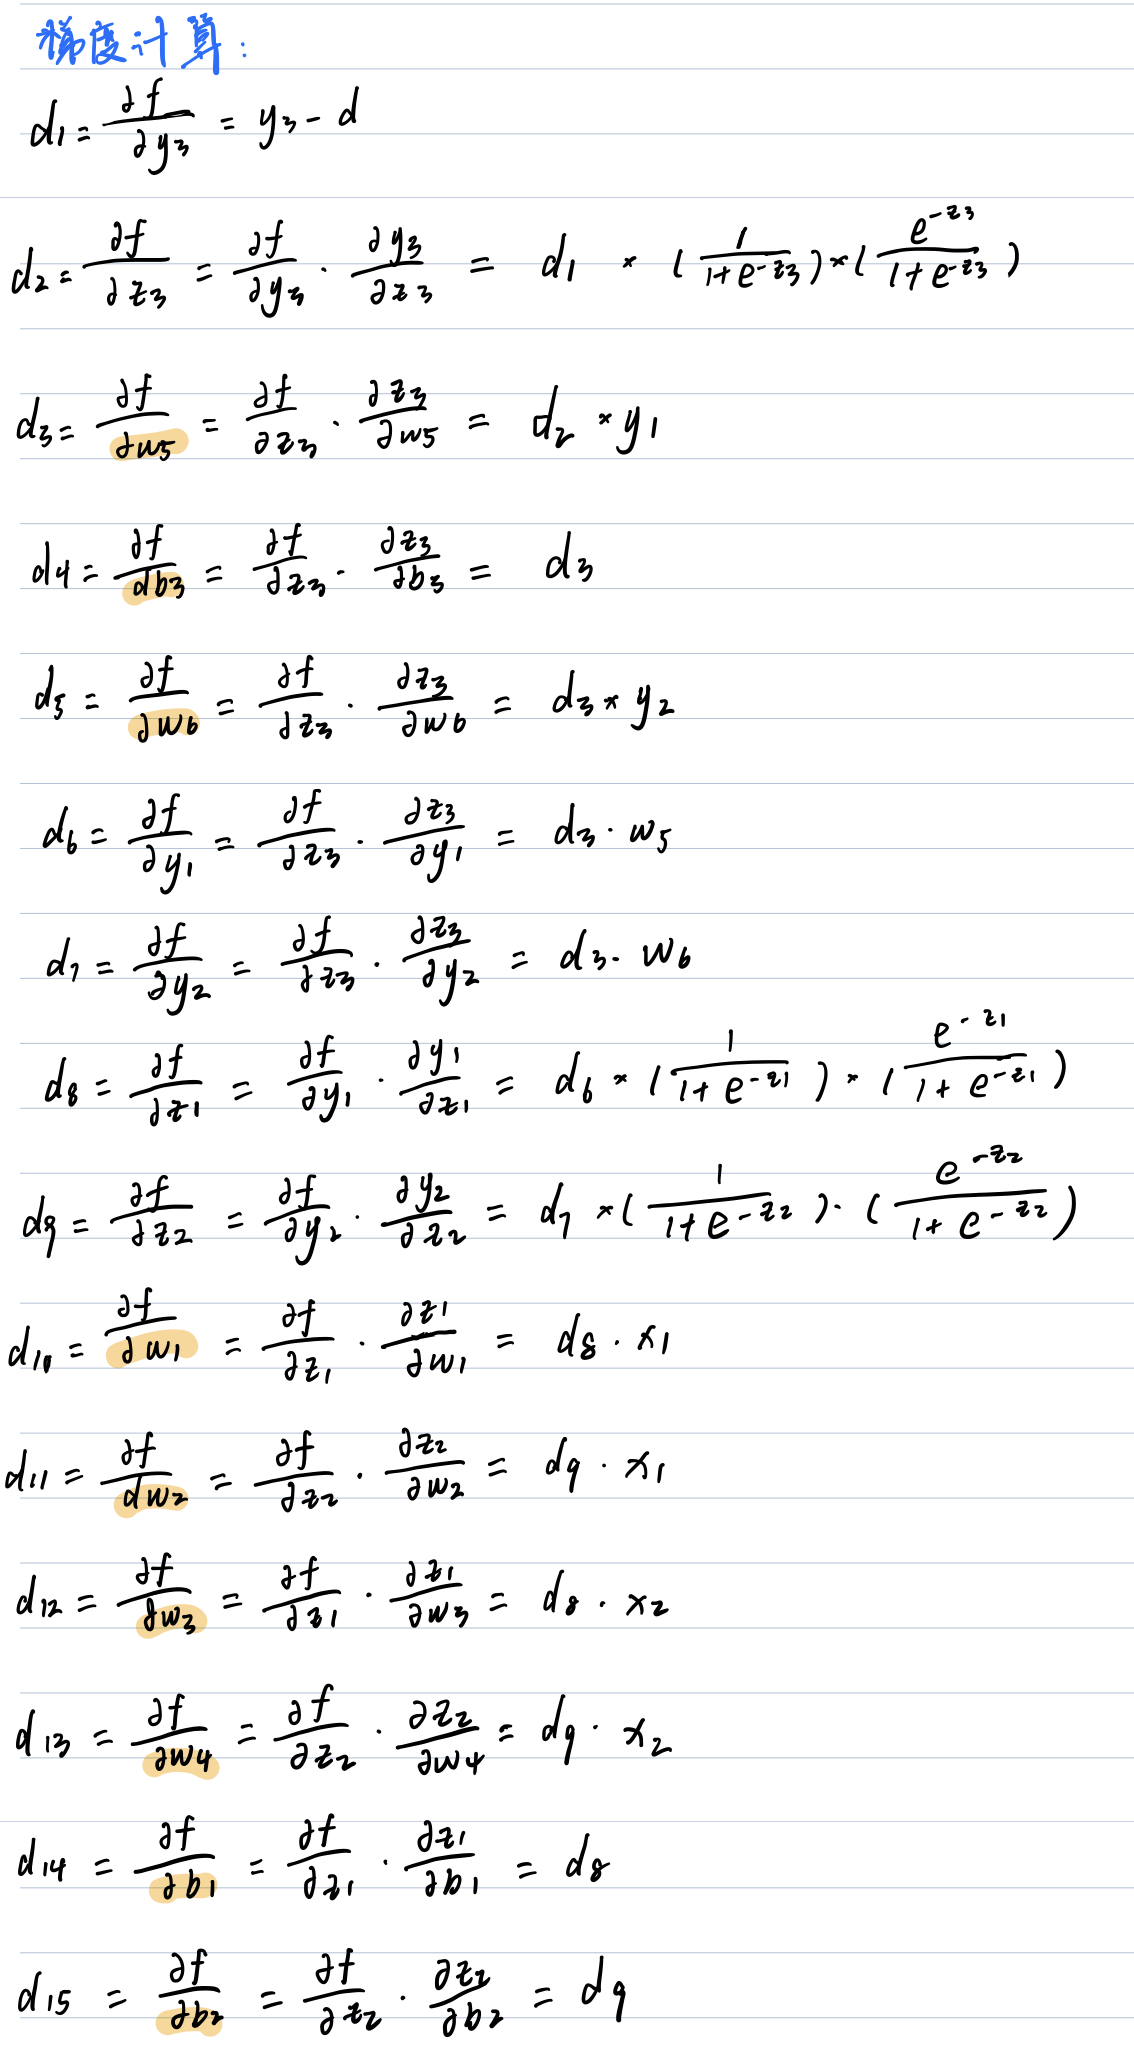 梯度计算:
d1 = ∂f/∂y3 = y3 - d
d2 = ∂f/∂z3 = ∂f/∂y3 · ∂y3/∂z3 = d1 * (1/(1+e^-z3)) * (e^-z3/(1+e^-z3))
d3 = ∂f/∂w5 = ∂f/∂z3 · ∂z3/∂w5 = d2 * y1
d4 = ∂f/db3 = ∂f/∂z3 · ∂z3/∂b3 = d3
d5 = ∂f/∂w6 = ∂f/∂z3 · ∂z3/∂w6 = d3 * y2
d6 = ∂f/∂y1 = ∂f/∂z3 · ∂z3/∂y1 = d3 · w5
d7 = ∂f/∂y2 = ∂f/∂z3 · ∂z3/∂y2 = d3 · w6
d8 = ∂f/∂z1 = ∂f/∂y1 · ∂y1/∂z1 = d6 * (1/(1+e^-z1)) * (e^-z1/(1+e^-z1))
d9 = ∂f/∂z2 = ∂f/∂y2 · ∂y2/∂z2 = d7 * (1/(1+e^-z2)) · (e^-z2/(1+e^-z2))
d10 = ∂f/∂w1 = ∂f/∂z1 · ∂z1/∂w1 = d8 · x1
d11 = ∂f/dw2 = ∂f/∂z2 · ∂z2/∂w2 = d9 · x1
d12 = ∂f/∂w3 = ∂f/∂z1 · ∂z1/∂w3 = d8 · x2
d13 = ∂f/∂w4 = ∂f/∂z2 · ∂z2/∂w4 = d9 · x2
d14 = ∂f/∂b1 = ∂f/∂z1 · ∂z1/∂b1 = d8
d15 = ∂f/∂b2 = ∂f/∂z2 · ∂z2/∂b2 = d9